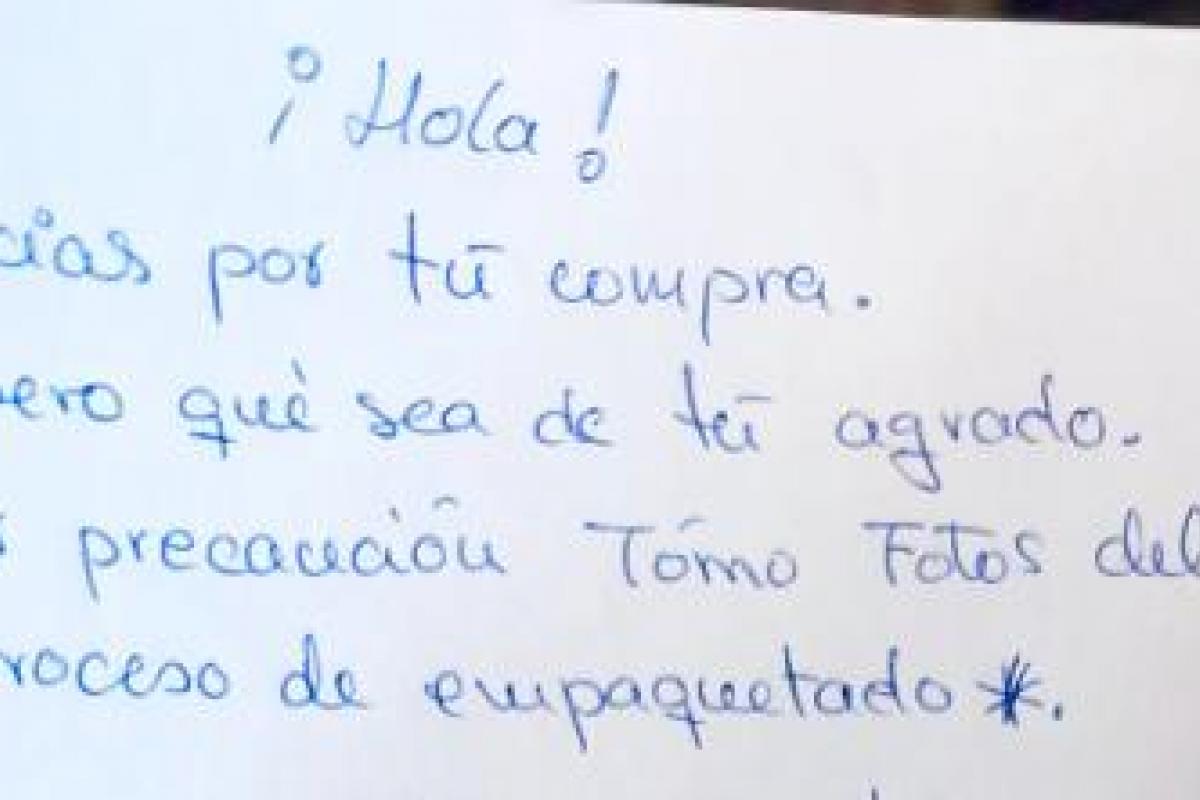 ¡Hola!
cias por tú compra.
pero qué sea de tú agrado.
precaución Tómo Fotos del
roceso de empaquetado*.